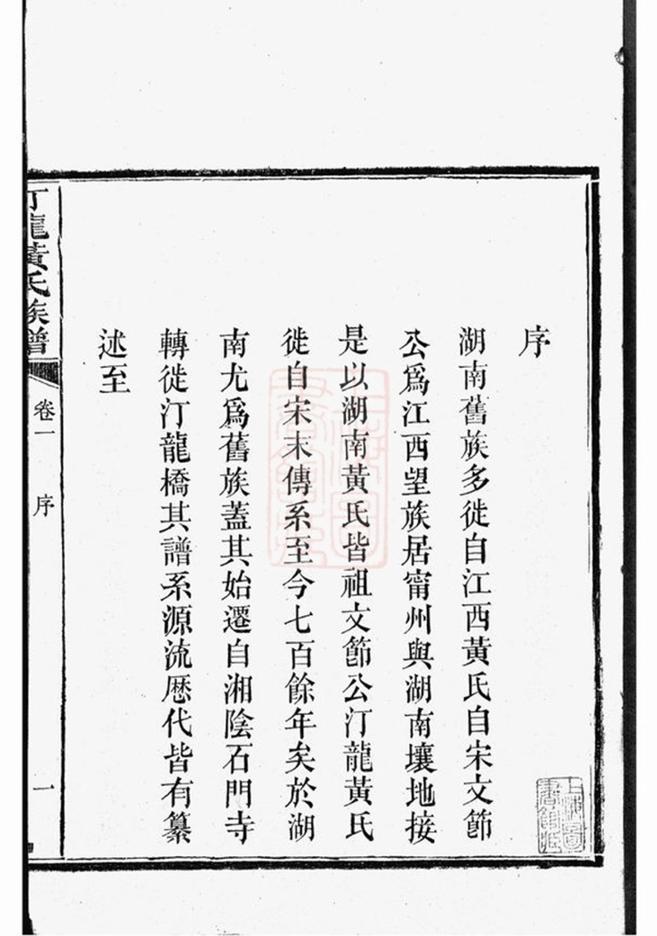 序
湖南舊族多徙自江西黃氏自宋文節
公爲江西望族居甯州與湖南壤地接
是以湖南黃氏皆祖文節公汀龍黃氏
徙自宋末傳系至今七百餘年矣於湖
南尤爲舊族蓋其始遷自湘陰石門寺
轉徙汀龍橋其譜系源流歷代皆有纂
述至
汀龍黃氏族譜
卷一
序
一
上海圖書館藏